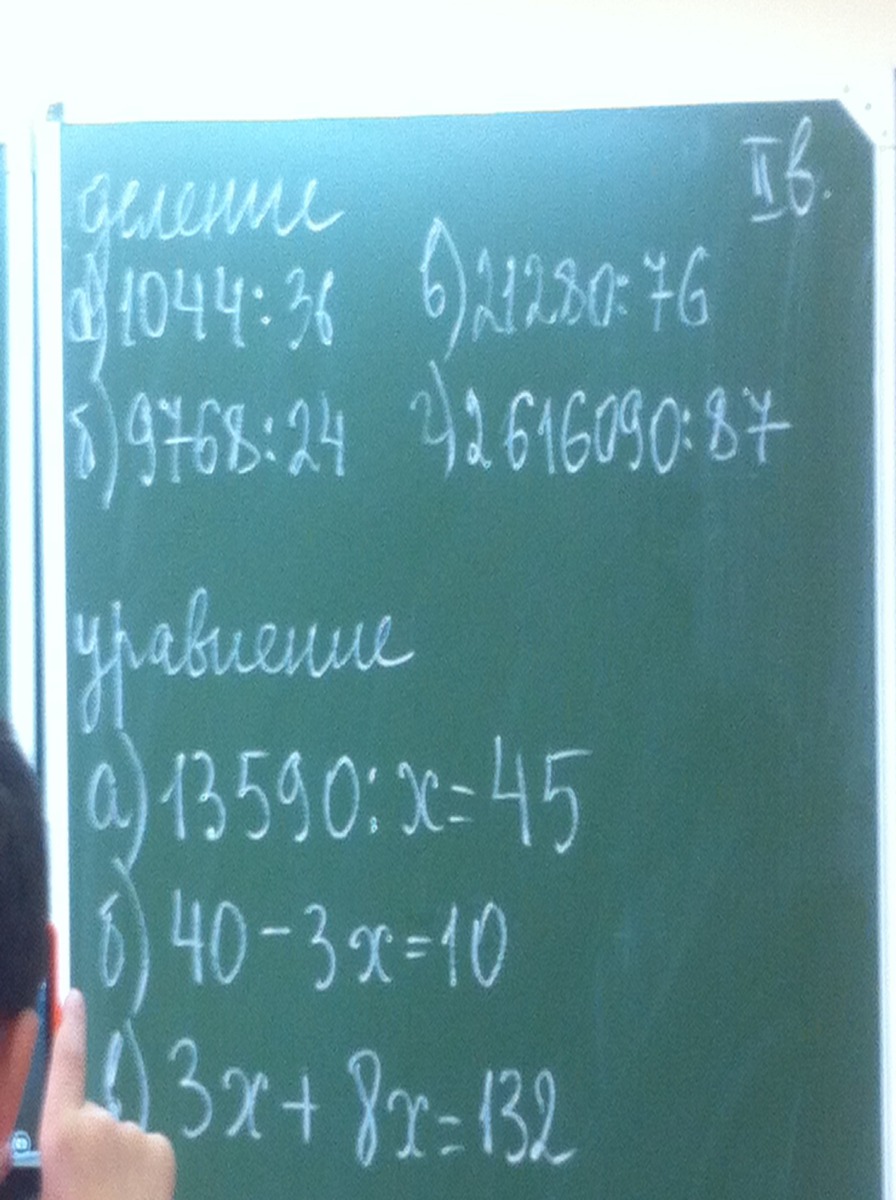 IIв.
деление
а) 1044:36 в) 21280:76
б) 9768:24 г) 2616090:87
уравнение
а) 13590:x=45
б) 40-3x=10
в) 3x+8x=132